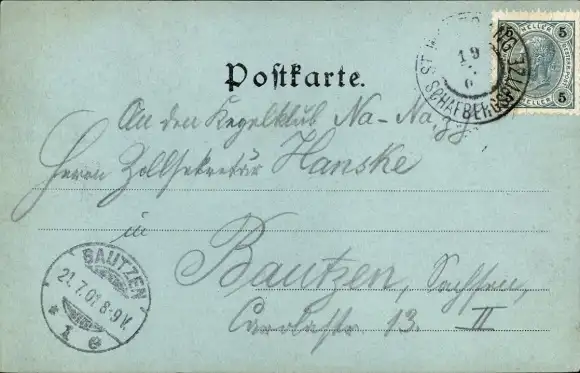 5 5
HELLER HELLER
5 5
ST. WOLFGANG
19
SCHAFBERGSPITZE
Postkarte.
An den Kegelklub Na-Na
Herrn Zollsekretär Hanske
in
Bautzen, Sachsen,
Carolastr 13. II
BAUTZEN
21.7.01.8-9V.
* 1 e